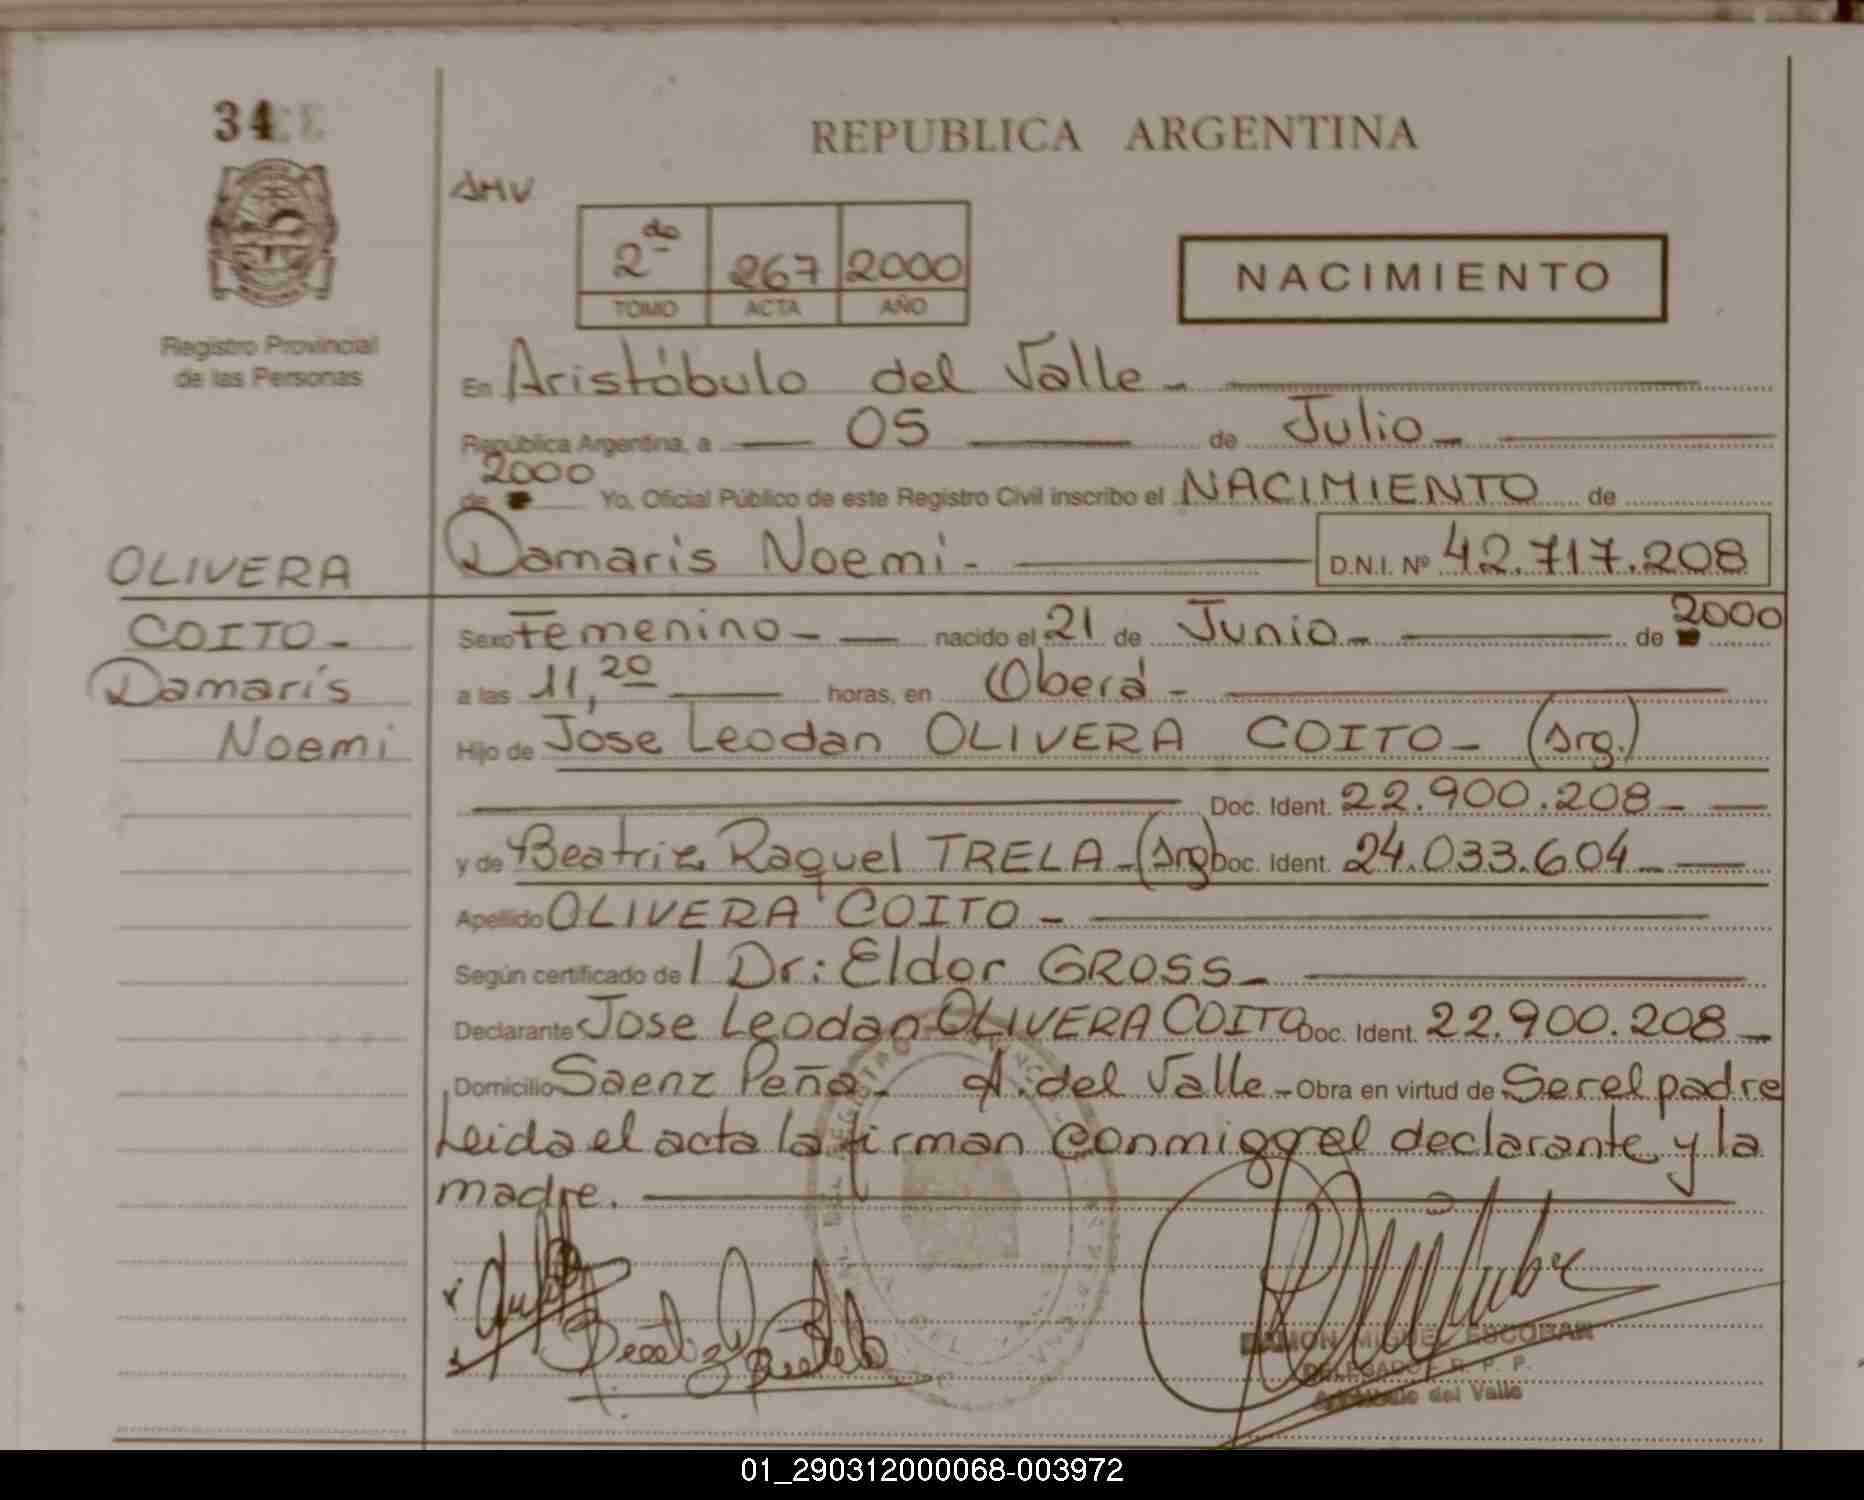 34
REPUBLICA ARGENTINA
AMV
2do 267 2000
TOMO ACTA AÑO
NACIMIENTO
Registro Provincial
de las Personas
En Aristóbulo del Valle -
República Argentina, a 05 de Julio -
2000
de Yo, Oficial Público de este Registro Civil inscribo el NACIMIENTO de
OLIVERA
COITO -
Damaris
Noemi
Damaris Noemi - D.N.I. Nº 42.717.208
Sexo Femenino - nacido el 21 de Junio - de 2000
a las 11,20 horas, en Oberá -
Hijo de Jose Leodan OLIVERA COITO - (Arg.)
Doc. Ident. 22.900.208 -
y de Beatriz Raquel TRELA - (Arg) Doc. Ident. 24.033.604 -
Apellido OLIVERA COITO -
Según certificado de l Dr: Eldor GROSS -
Declarante Jose Leodan OLIVERA COITO Doc. Ident. 22.900.208 -
Domicilio Saenz Peña - A. del Valle - Obra en virtud de Ser el padre
Leida el acta la firman conmigo el declarante y la
madre.
RAMON MIGUEL ESCOBAR
DELEGADO R. P. P.
Aristóbulo del Valle
01_290312000068-003972